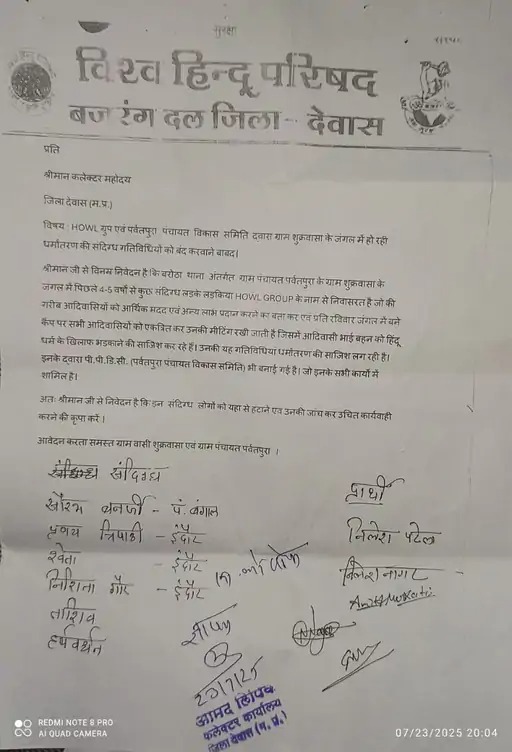 सुरक्षा
विश्व हिन्दू परिषद
बजरंग दल जिला - देवास
प्रति
श्रीमान कलेक्टर महोदय
जिला देवास (म.प्र.)
विषय : HOWL ग्रुप एवं पर्वतपुरा पंचायत विकास समिति दवारा ग्राम शुक्रवासा के जंगल में हो रही
धर्मातरण की संदिग्ध गतिविधियों को बंद करवाने बाबद।
श्रीमान जी से विनम्र निवेदन है कि बरोठा थाना अंतर्गत ग्राम पंचायत पर्वतपुरा के ग्राम शुक्रवासा के
जंगल में पिछले 4-5 वर्षो से कुछ संदिग्ध लडके लडकिया HOWL GROUP के नाम से निवासरत है जो की
गरीब आदिवासियों को आर्थिक मदद एवं अन्य लाभ प्रदान करने का बता कर एवं प्रति रविवार जंगल में बने
कैंप पर सभी आदिवासियों को एकत्रित कर उनकी मीटिंग रखी जाती है जिसमे आदिवासी भाई बहन को हिंदू
धर्म के खिलाफ भडकाने की साजिश कर रहे हैं। उनकी यह गतिविधिया धर्मातरण की साजिश लग रही है।
इनके दवारा पी.पी.डि.सी. (पर्वतपुरा पंचायत विकास समिति) भी बनाई गई है। जो इनके सभी कार्यो में
शामिल है।
अतः श्रीमान जी से निवेदन है कि इन संदिग्ध लोगों को यहा से हटाने एव उनकी जांच कर उचित कार्यवाही
करने की कृपा करें।
आवेदन करता समस्त ग्राम वासी शुक्रवासा एवं ग्राम पंचायत पर्वतपुरा ।
संदिग्ध
प्रार्थी
सौरभ बनर्जी - पं. बंगाल
प्रणय त्रिपाठी - इंदौर
निलेश पटेल
श्वेता - इंदौर
निशिता गौर - इंदौर
निलेश नागर
ताशिव
हर्षवर्धन
23/7/25
आमद लिपिक
कलेक्टर कार्यालय
जिला देवास (म. प्र.)
REDMI NOTE 8 PRO
AI QUAD CAMERA
07/23/2025 20:04